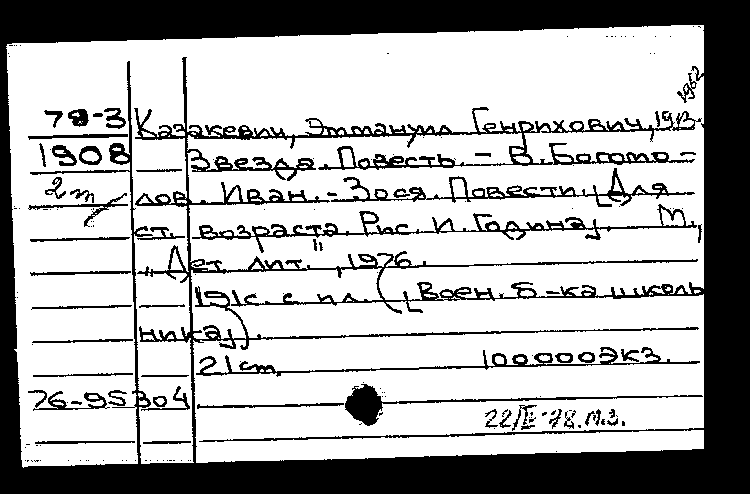 1962
78-3 Казакевич, Эммануил Генрихович, 1913-
1908 Звезда. Повесть. - В. Богомо-
2т лов. Иван. - Зося. Повести. [Для
ст. возраста. Рис. И. Година]. М.,
„Дет. лит.", 1976.
191с. с ил. ([Воен. б-ка школь
ника]).
21 см. 100000экз.
76-95304
22/III-78. М.З.